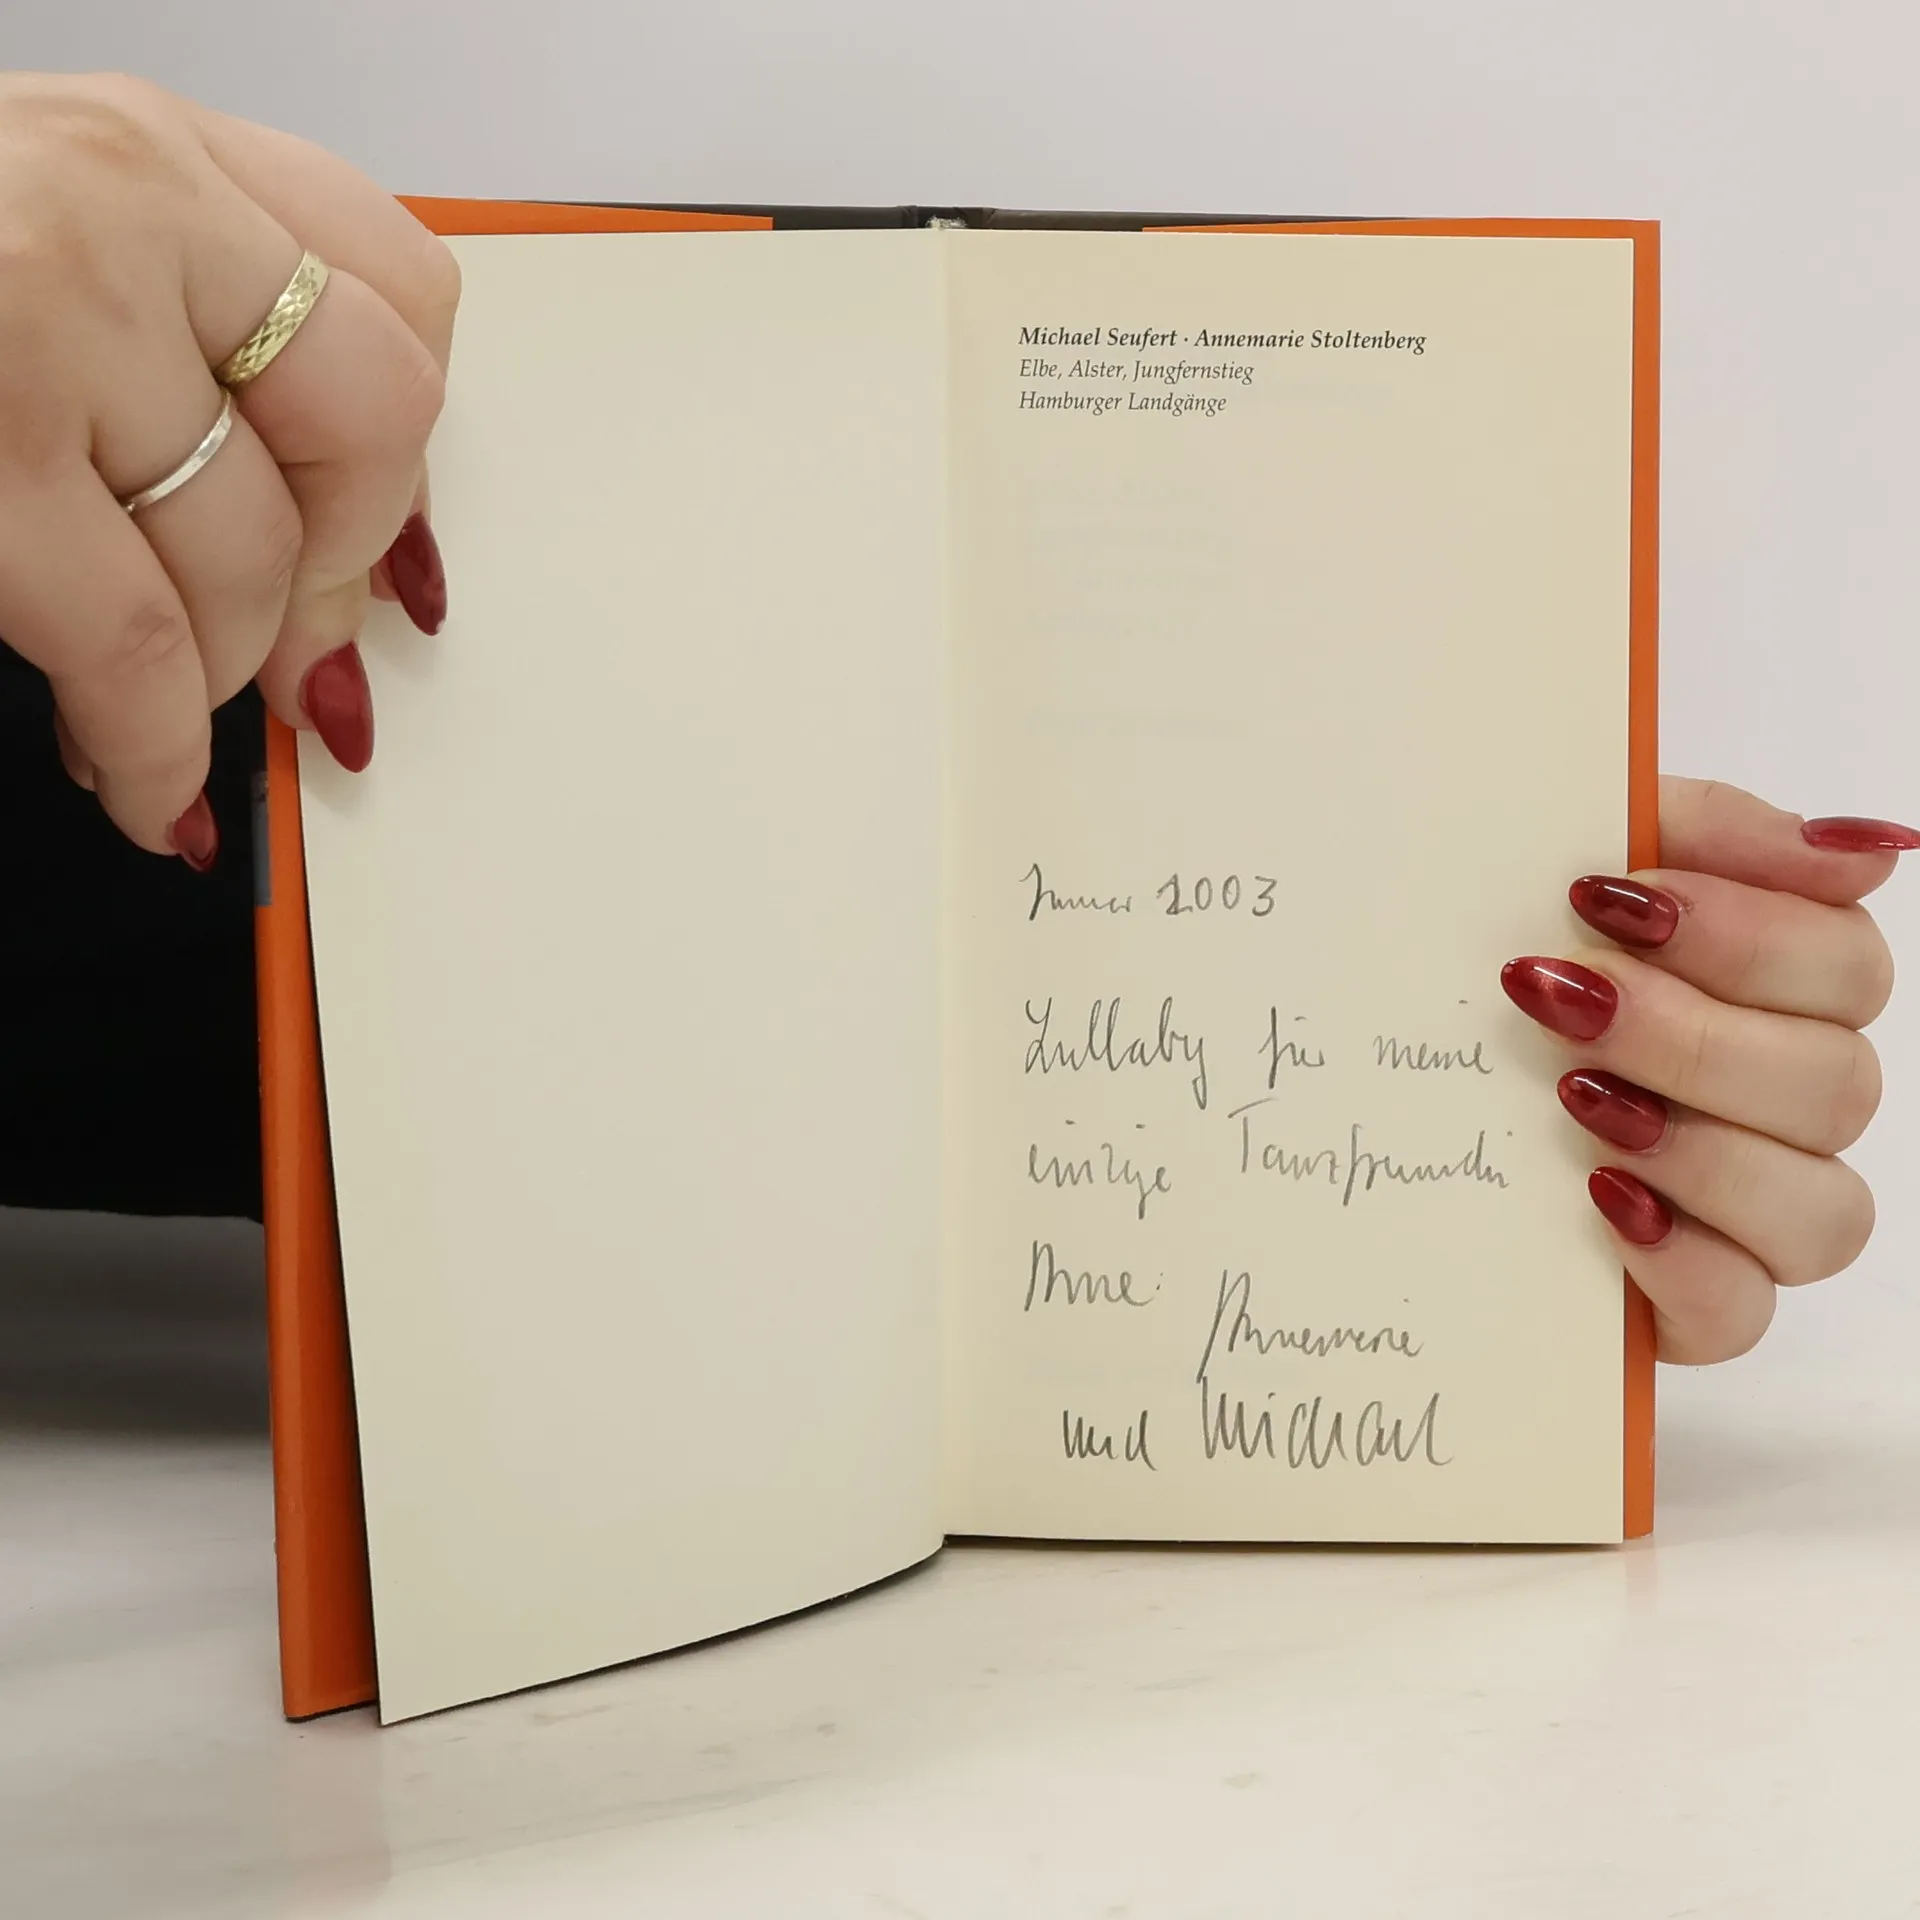 Michael Seufert · Annemarie Stoltenberg
Elbe, Alster, Jungfernstieg
Hamburger Landgänge
Januar 2003
Lullaby für meine
einzige Tanzfreundin
Anne:
Annemarie
und Michael